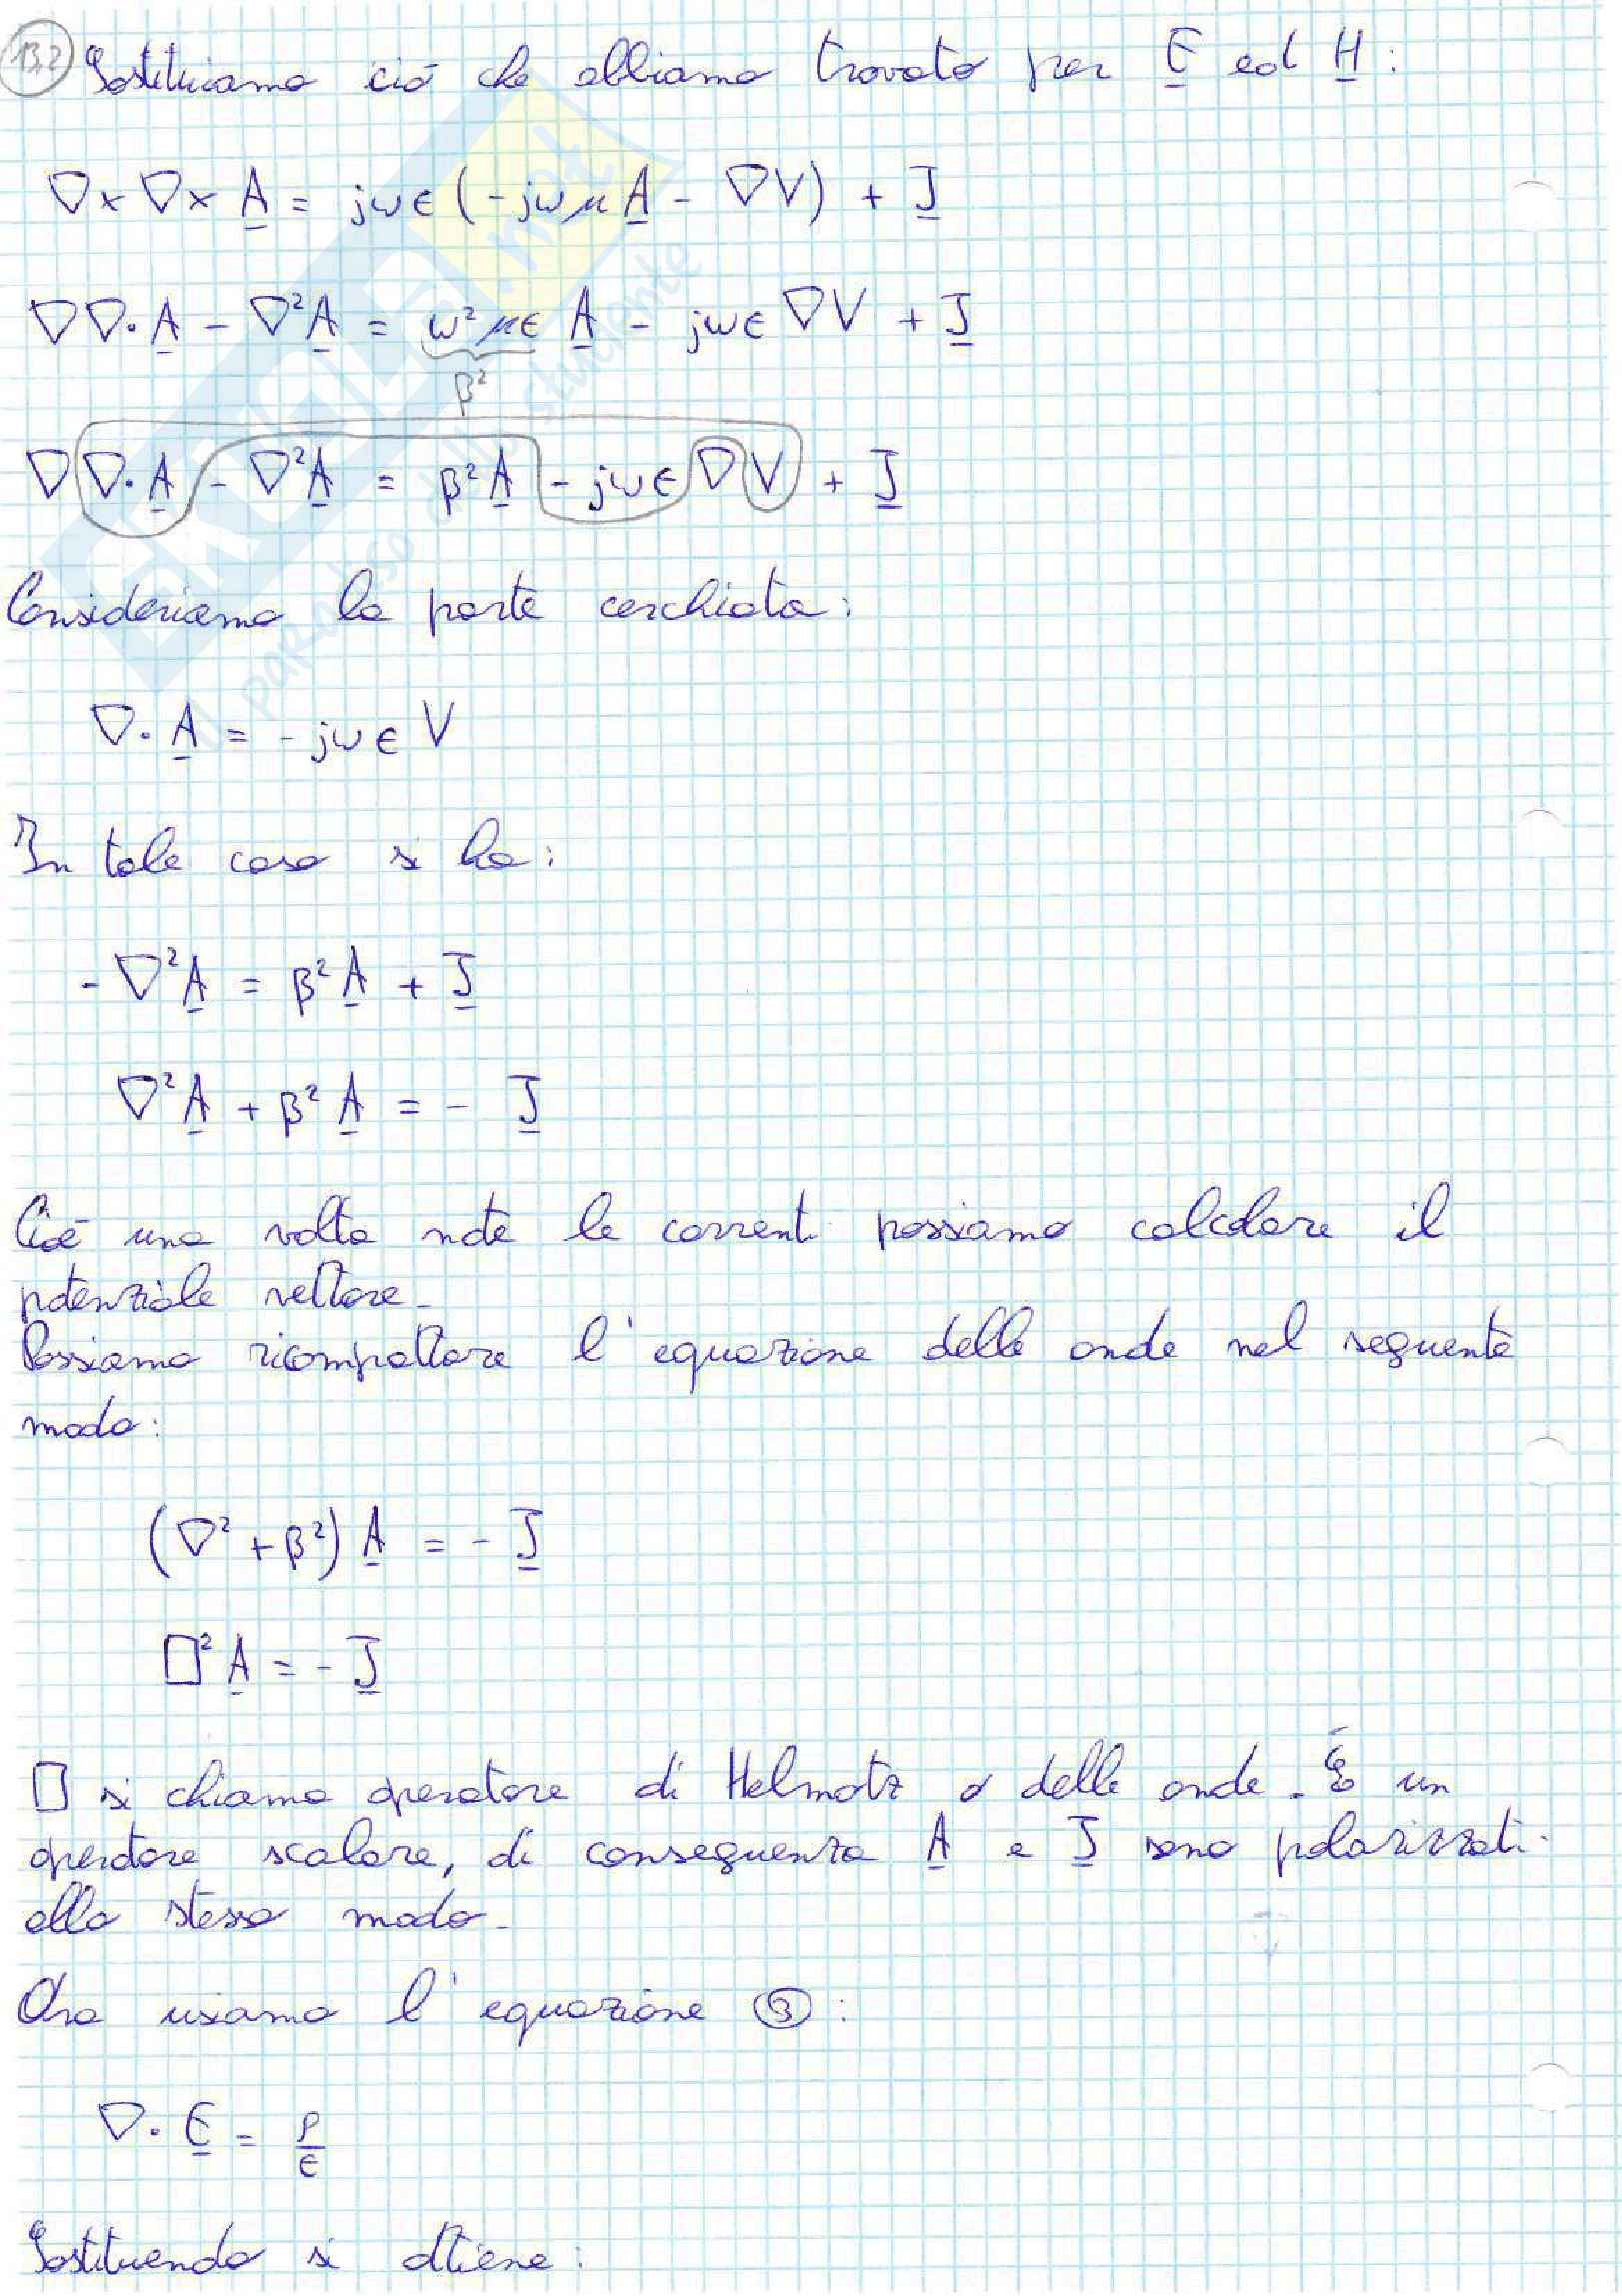 13.2 Sostituiamo ciò che abbiamo trovato per E ed H:
∇×∇×A = jωϵ(-jωμA - ∇V) + J
∇∇·A - ∇²A = ω²μϵ A - jωϵ∇V + J
β²
∇∇·A - ∇²A = β²A - jωϵ∇V + J
Consideriamo la parte cerchiata:
∇·A = -jωϵV
In tale caso si ha:
-∇²A = β²A + J
∇²A + β²A = - J
Cioè una volta note le correnti possiamo calcolare il
potenziale vettore.
Possiamo ricompattare l'equazione delle onde nel seguente
modo:
(∇²+β²)A = - J
□²A = - J
□ si chiama operatore di Helmotz o delle onde. È un
operatore scalare, di conseguenza A e J sono polarizzati
allo stesso modo.
Ora usiamo l'equazione ③:
∇·E = ρ/ϵ
Sostituendo si ottiene:
SKUOLA.net
il paradiso dello studente